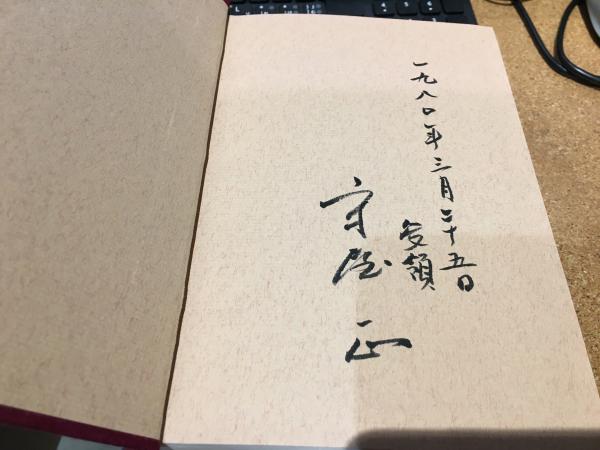 一九八〇年三月二十五日
受領
守屋 正